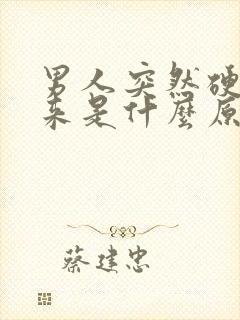 男人突然硬
来是什麼原
蔡建忠